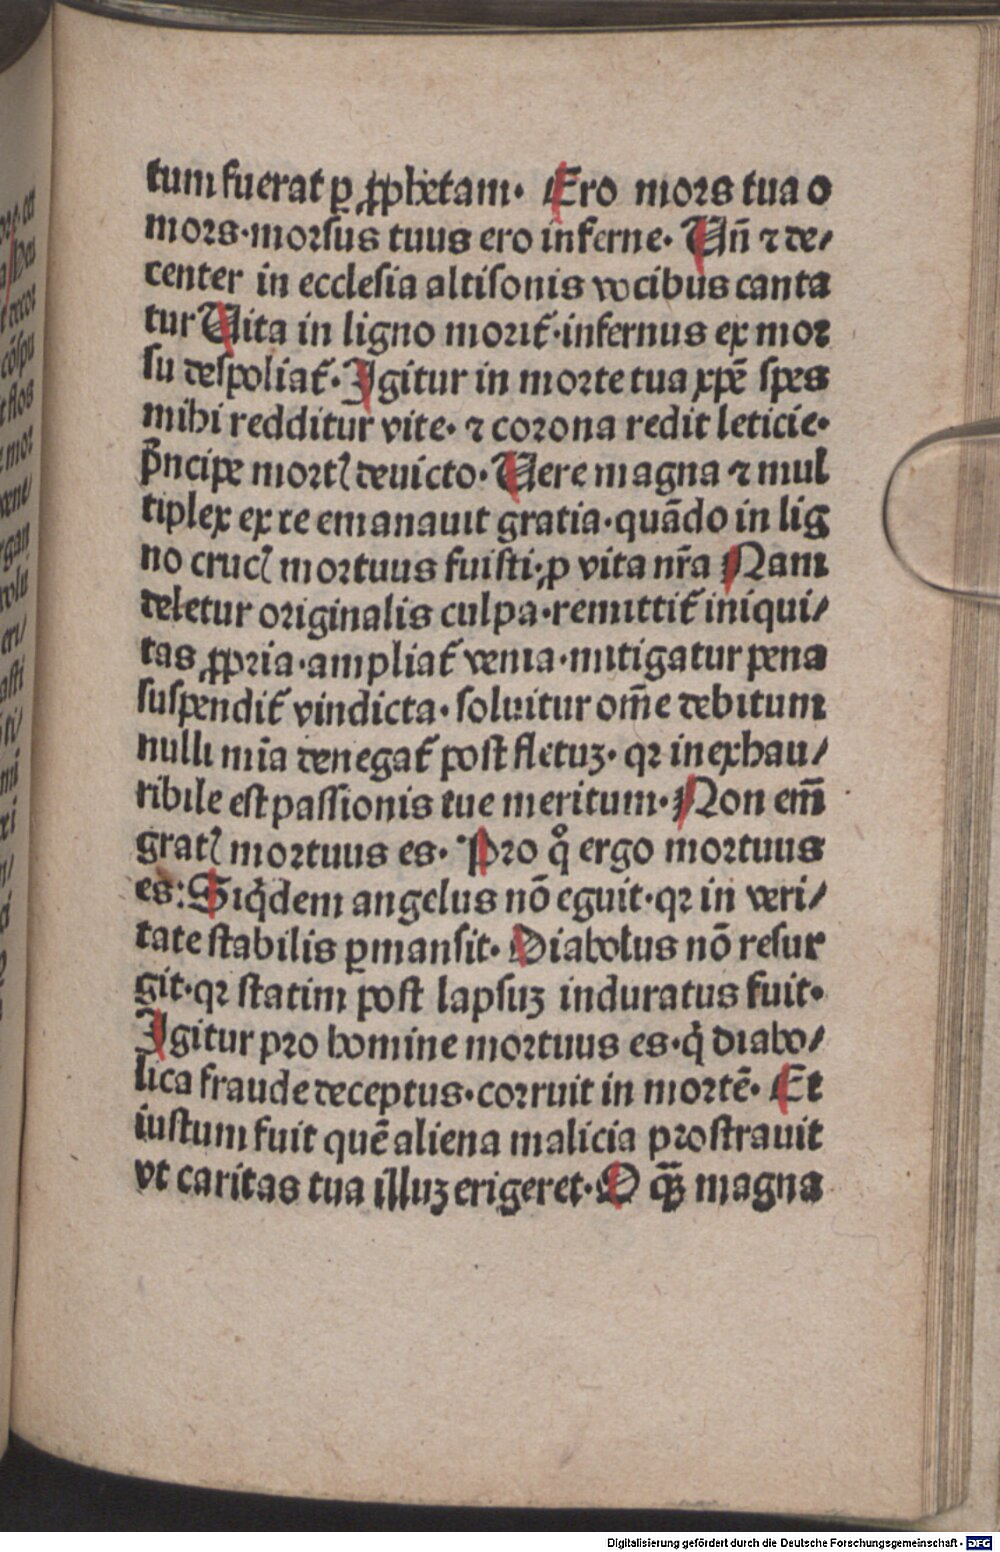 tum fuerat ꝑ ꝓphetam· Ero mors tua o
mors·morsus tuus ero inferne· Vn̄ ⁊ de/
center in ecclesia altisonis vocibus canta
tur Vita in ligno morit᷑·infernus ex mor
su despoliat᷑· Igitur in morte tua xp̄e spes
mihi redditur vite· ⁊ corona redit leticie·
p̄ncipe mortꝭ deuicto· Vere magna ⁊ mul
tiplex ex te emanauit gratia·quādo in lig
no crucꝭ mortuus fuisti·ꝓ vita nr̄a Nam
deletur originalis culpa·remittit᷑ iniqui/
tas ꝓpria·ampliat᷑ venia·mitigatur pena
suspendit᷑ vindicta·soluitur om̄e debitum
nulli mīa denegat᷑ post fletuꝫ· qꝛ inexhau/
ribile est passionis tue meritum· Non em̄
gratꝭ mortuus es· Pro qͦ ergo mortuus
es: Siqͥdem angelus nō eguit·qꝛ in veri/
tate stabilis ꝑmansit· Diabolus nō resur
git·qꝛ statim post lapsuꝫ induratus fuit·
Igitur pro homine mortuus es·qͥ diabo/
lica fraude deceptus·corruit in mortē· Et
iustum fuit quē aliena malicia prostrauit
vt caritas tua illuꝫ erigeret· O qꝫ̄ magna
Digitalisierung gefördert durch die Deutsche Forschungsgemeinschaft - DFG